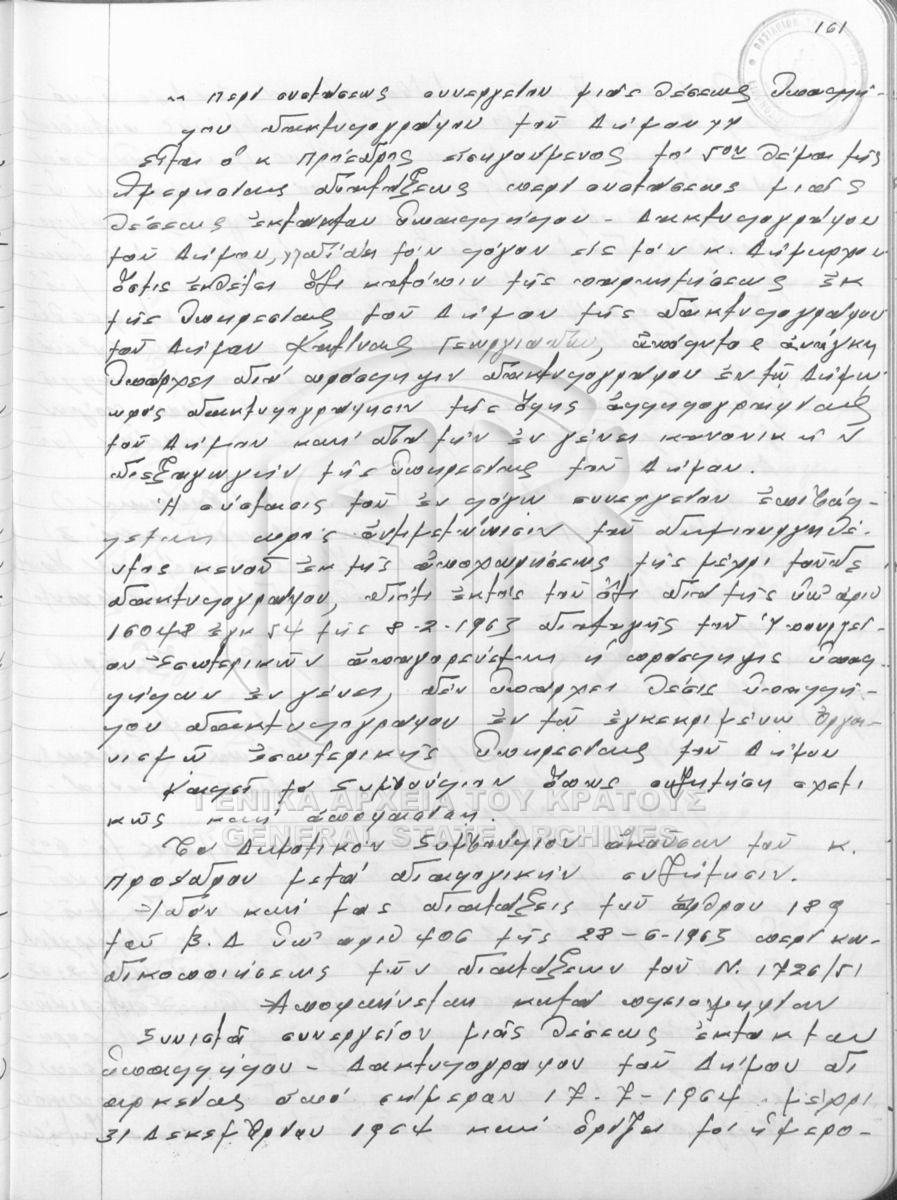 161
" περί συστάσεως συνεργείου μιάς θέσεως Ὑπαλλή-
λου δακτυλογράφου τοῦ Δήμου "
Εἶτα ὁ κ Πρόεδρος εἰσηγούμενος τό 5ον θέμα τῆς
ἡμερησίας διατάξεως περί συστάσεως μιᾶς
θέσεως ἐκτάκτου ὑπαλλήλου - Δακτυλογράφου
τοῦ Δήμου, δίδει τόν λόγον εἰς τόν κ. Δήμαρχον
ὅστις ἐκθέτει ὅτι κατόπιν τῆς παραιτήσεως ἐκ
τῆς ὑπηρεσίας τοῦ Δήμου τῆς δακτυλογράφου
τοῦ Δήμου Κατίνας Γεωργιάδου, ἀπόλυτος ἀνάγκη
ὑπάρχει διά πρόσληψιν δακτυλογράφου ἐν τῷ Δήμῳ
πρός δακτυλογράφησιν τῆς ὅλης ἀλληλογραφίας
τοῦ Δήμου καί διά τήν ἐν γένει κανονικήν
διεξαγωγήν τῆς ὑπηρεσίας τοῦ Δήμου.
Ἡ σύστασις τοῦ ἐν λόγῳ συνεργείου ἐπιβάλ-
λεται πρός ἀντιμετώπισιν τοῦ δημιουργηθέ-
ντος κενοῦ ἐκ τῆς ἀποχωρήσεως τῆς μέχρι τοῦδε
δακτυλογράφου, διότι ἐκτός τοῦ ὅτι διά τῆς ὑπ' ἀριθ
16048 ἐγκ 54 τῆς 8-2-1963 διαταγῆς τοῦ Ὑπουργεί-
ου Ἐσωτερικῶν ἀπαγορεύεται ἡ πρόσληψις ὑπαλ-
λήλων ἐν γένει, δέν ὑπάρχει θέσις ὑπαλλή-
λου δακτυλογράφου ἐν τῷ ἐγκεκριμένῳ Ὀργα-
νισμῷ ἐσωτερικῆς ὑπηρεσίας τοῦ Δήμου
Καλεῖ τό Συμβούλιον ὅπως συζητήση σχετι
κῶς καί ἀποφασίση.
ΓΕΝΙΚΑ ΑΡΧΕΙΑ ΤΟΥ ΚΡΑΤΟΥΣ
GENERAL STATE ARCHIVES
Τό Δημοτικόν Συμβούλιον ἀκοῦσαν τοῦ κ.
Προέδρου μετά διαλογικήν συζήτησιν.
Ἰδόν καί τάς διατάξεις τοῦ ἄρθρου 189
τοῦ Β.Δ ὑπ' ἀριθ 406 τῆς 28-6-1963 περί κω-
δικοποιήσεως τῶν διατάξεων τοῦ Ν. 1726/51
Ἀποφαίνεται κατά πλειοψηφίαν
Συνιστᾶ συνεργεῖον μιᾶς θέσεως ἐκτάκτου
ὑπαλλήλου - Δακτυλογράφου τοῦ Δήμου δι
αρκείας ἀπό σήμερον 17-7-1964 μέχρι
31 Δεκεμβρίου 1964 καί ὁρίζει